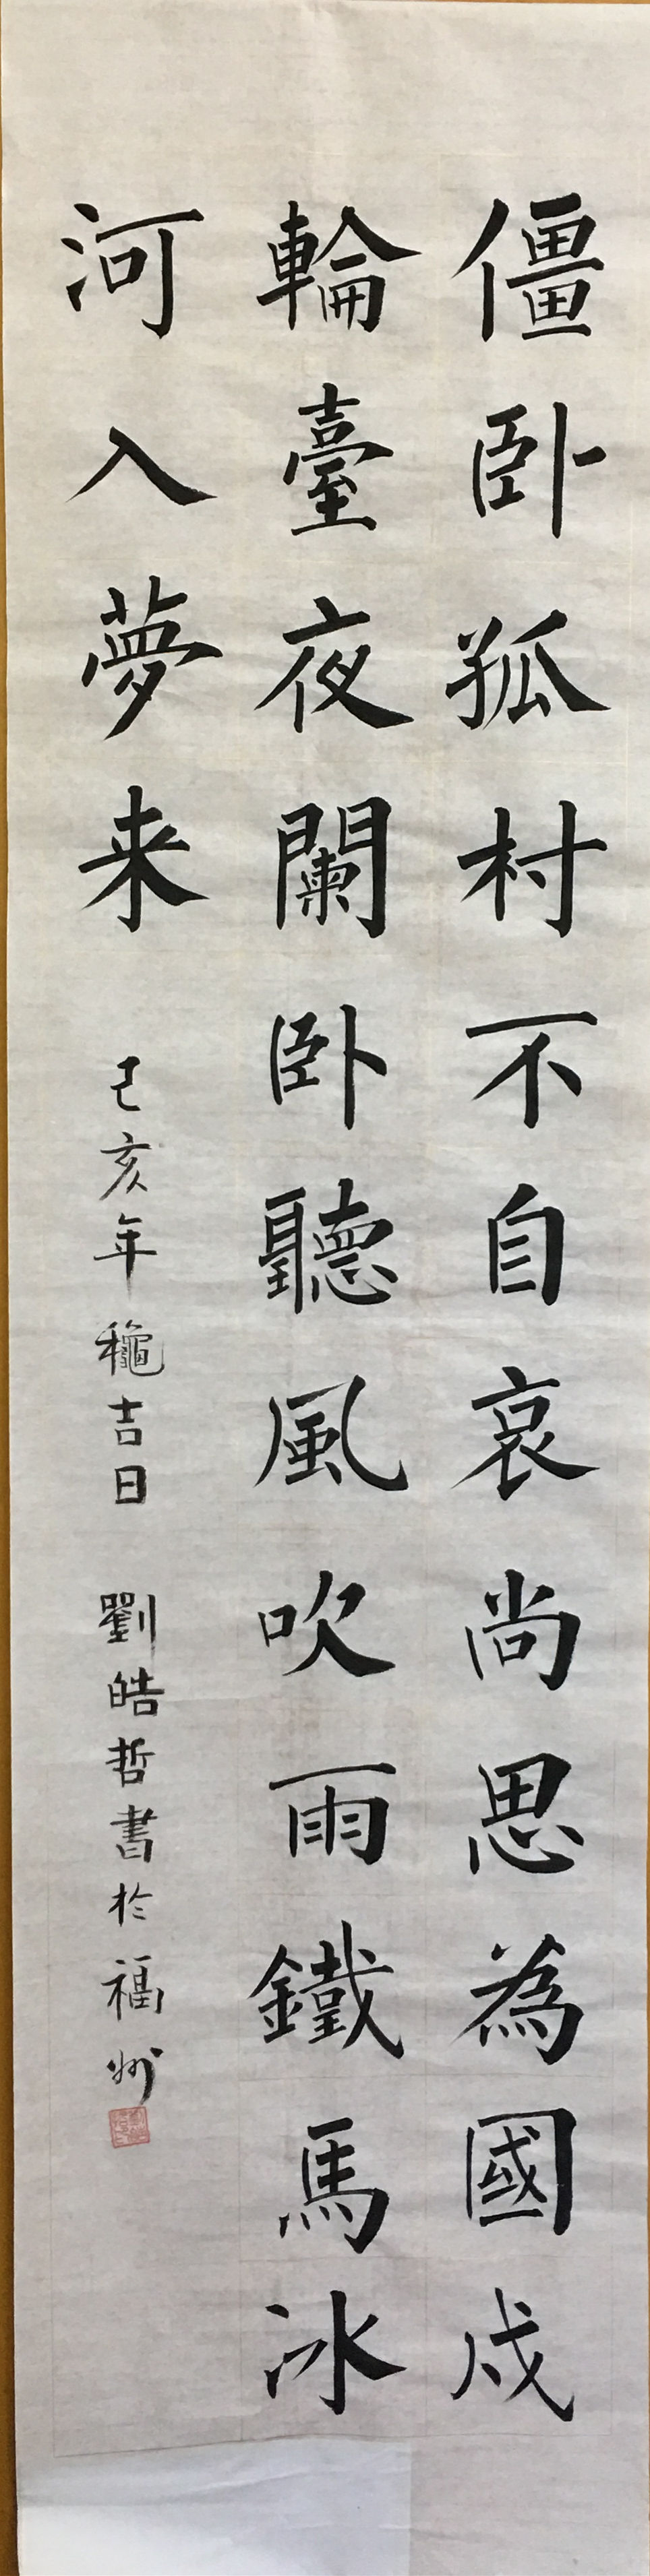 僵卧孤村不自哀尚思為國戍
輪臺夜闌卧聽風吹雨鐵馬冰
河入夢来
己亥年龝吉日 劉皓哲書於福州